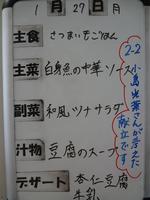 1月29日
主食 さつまいもごはん
主菜 白身魚の中華ソース
副菜 和風ツナサラダ
汁物 豆腐のスープ
デザート 杏仁豆腐
牛乳
2-2
小島 さんが考えた
献立です